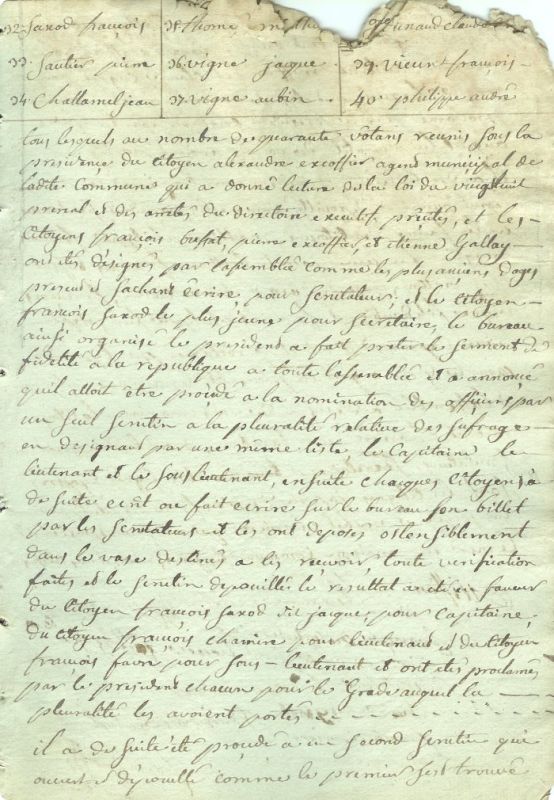 32 Saxod françois 35 thomé 38 pinaud claude
33 Sautier pierre 36 vigne jacque 39 vieux françois
34 Challamel jean 37 vigne aubin 40 philippe andré
tous lesquels au nombre de quarante votans reunis sous la
presidence du Citoyen alexandre excoffier agent municipal de
ladite Commune qui a donné lecture de la loi du vingt huit
prerial et des arretés du directoire executif précités, et les
Citoyens françois bussat, pierre excoffier, et etienne Gallay
ont étés désignés par l'assemblée comme les plus anciens d'ages
present et Sachant écrire, pour Scrutateur, et le Citoyen
françois Saxod le plus jeune pour Secretaire, le bureau
ainsi organisé le president a fait preter le Serment de
fidelité a la republique a toute l'assemblée et a annoncé
qu'il alloit être procédé a la nomination des officiers par
un Seul Scrutin a la pluralité relative des Sufrages
en designant par une même liste, le Capitaine le
lieutenant et le Sous lieutenant, ensuite chaques Citoyens a
de suite ecrit ou fait ecrire Sur le bureau Son billet
par les Scrutateurs et les ont deposés ostensiblement
dans le vase destinés a les recevoir, toute verification
faites et le Scrutin depouillés le resultat a eté en faveur
du Citoyen françois Saxod dit jacques pour Capitaine,
du Citoyen françois chamive pour lieutenant et du Citoyen
françois favre pour Sous-lieutenant et ont etés proclamés
par le president chacun pour le Grade auquel la
pluralité les avoient portés
il a de Suite été procédé a un Second Scrutin qui
ouvert et dépouillé comme le premier s'est trouvé